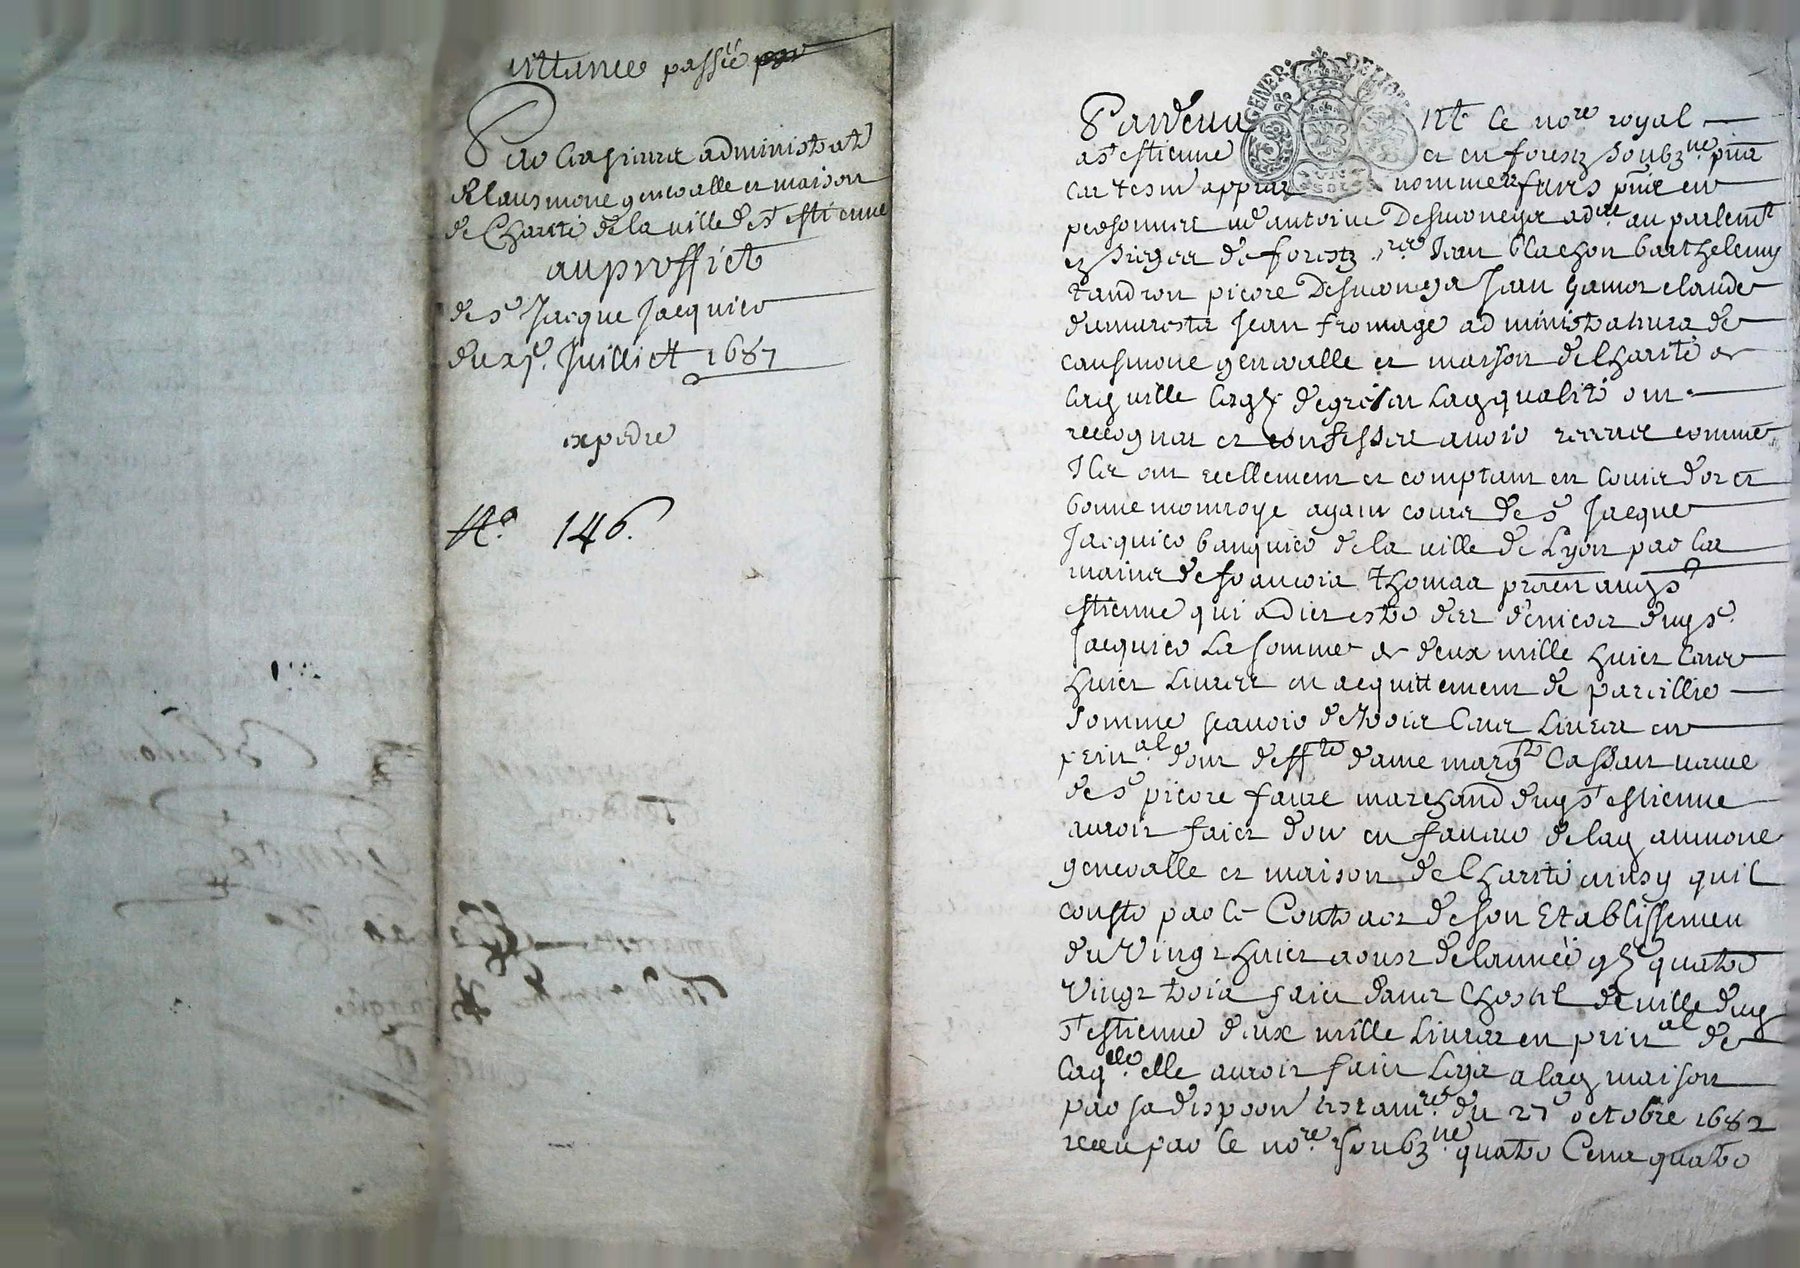 uittance passée
Par les sieurs administrat
de l'ausmone generalle et maison
de Charité de la ville de st estienne
au proffict
de sr Jacque Jacquier
du xje. Juilliett 1687
expedié
No. 146.
GENER DE LION
Pardevant le nore royal
a st estienne et en forestz soubzne
les tesm appres nommes fures pnt en
personnes me antoine Desverneys adcat au parlemt
et sieges de forestz Jean Blachon barthelemy
tandron pierre Desverneys Jean gamot claude
dumarestz Jean fromage administrateurs de
l'ausmone generalle et maison de Charité de
lad ville lesqls de gré en lad qualité ont
recognus et confessés avoir receus comme
Ils ont reellement et comptant en louis d'or et
bonne monnoye ayant cours de sr Jacque
Jacquier banquier de la ville de Lyon par les
mains de francois thomas prnt aud st
estienne qui a dict estre des deniers dud sr.
Jacquier La somme de deux mille huict Cents
huict Livres en acquittement de pareillie
somme scavoir de trois Cens Livres en
prinal. dont deffte dame margte Cassan veuve
de sr pierre faure marchand dud st estienne
auroit faict don en faveur de lad aumone
generalle et maison de Charité ainsy quil
conste par le Contract de son Etablissemen
du Vingt huict aoust de lannée gbj quatre
Vingt trois faict dans l'hostel de ville dud
st estienne deux mille Livres en prinal de
Laqlle. elle auroit faict Legs a lad maison
par sa dispoon testamre. du 27e octobre 1682
receu par le nore. soubzne. quatre Cens quatre